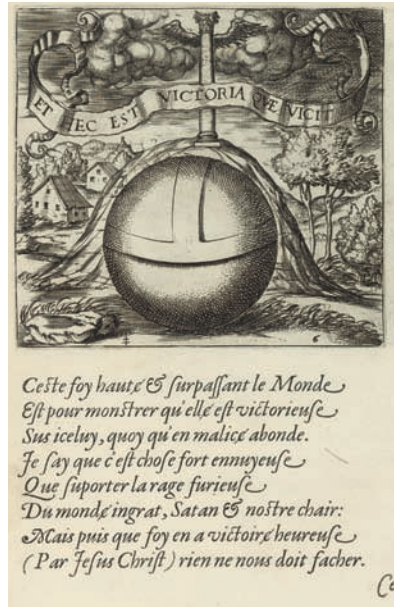 ET EC EST VICTORIA QVÆ VICIT
6
Ceste foy haute & surpassant le Monde
Est pour monstrer qu'elle est victorieuse
Sus iceluy, quoy qu'en malice abonde.
Je say que c'est chose fort ennuyeuse
Que suporter la rage furieuse
Du monde ingrat, Satan & nostre chair:
Mais puis que foy en a victoire heureuse
(Par Jesus Christ) rien ne nous doit facher.